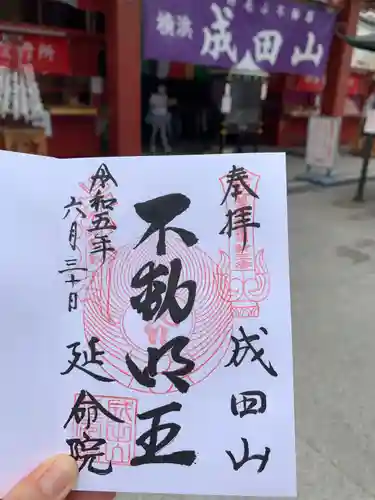 横浜
成田山
奉拝
成田山
不動明王
令和五年
六月三十日
延命院